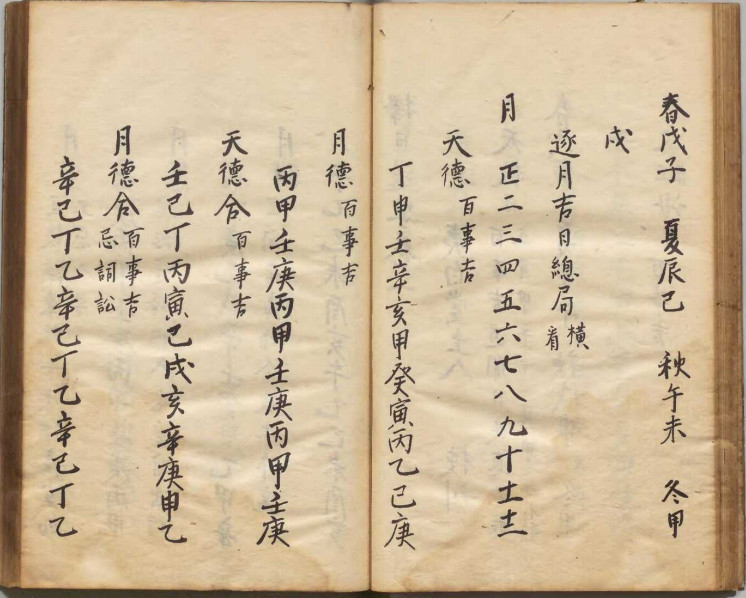 春戊子 夏辰己 秋午未 冬甲
戌
逐月吉日總局 橫看
月 正二三四五六七八九十十一十二
天德 百事吉
丁申壬辛亥甲癸寅丙乙己庚
月德 百事吉
丙甲壬庚丙甲壬庚丙甲壬庚
天德合 百事吉
壬己丁丙寅己戌亥辛庚申乙
月德合 百事吉 忌詞訟
辛己丁乙辛己丁乙辛己丁乙